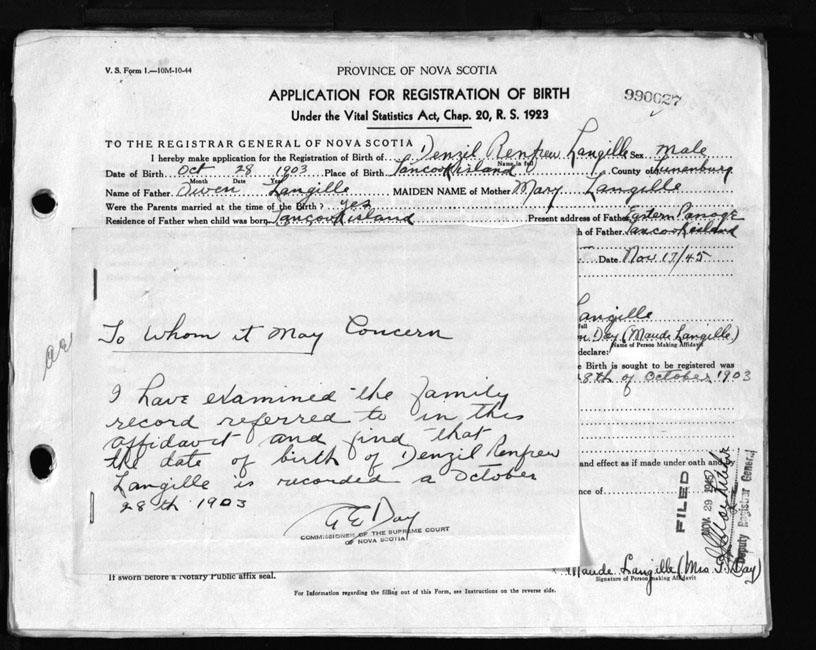 V. S. Form 1.—10M-10-44
PROVINCE OF NOVA SCOTIA
APPLICATION FOR REGISTRATION OF BIRTH
990027
Under the Vital Statistics Act, Chap. 20, R. S. 1923
TO THE REGISTRAR GENERAL OF NOVA SCOTIA
I hereby make application for the Registration of Birth of Denzil Renfrew Langille Sex Male
Name in full
Date of Birth Oct 28 1903 Place of Birth Tancook Island County of Lunenburg
Month Date Year
Name of Father Owen Langille MAIDEN NAME of Mother Mary Langille
Were the Parents married at the time of the Birth? yes
Residence of Father when child was born Tancook island Present address of Father Eastern Passage
h of Father Tancook island
Date Nov 17/45
To Whom it May Concern
I have examined the family
record referred to in this
affidavit and find that
the date of birth of Denzil Renfrew
Langille is recorded a October
28th 1903
G E Day
COMMISSIONER OF THE SUPREME COURT
OF NOVA SCOTIA
Langille
full
Day (Maude Langille)
Name of Person Making Affidavit
declare:
e Birth is sought to be registered was
28th of October 1903
and effect as if made under oath and by
nce of
FILED
NOV 29 1945
Deputy Registrar General
Maude Langille (Mrs Day)
Signature of Person making Affidavit
If sworn before a Notary Public affix seal.
For Information regarding the filling out of this Form, see Instructions on the reverse side.